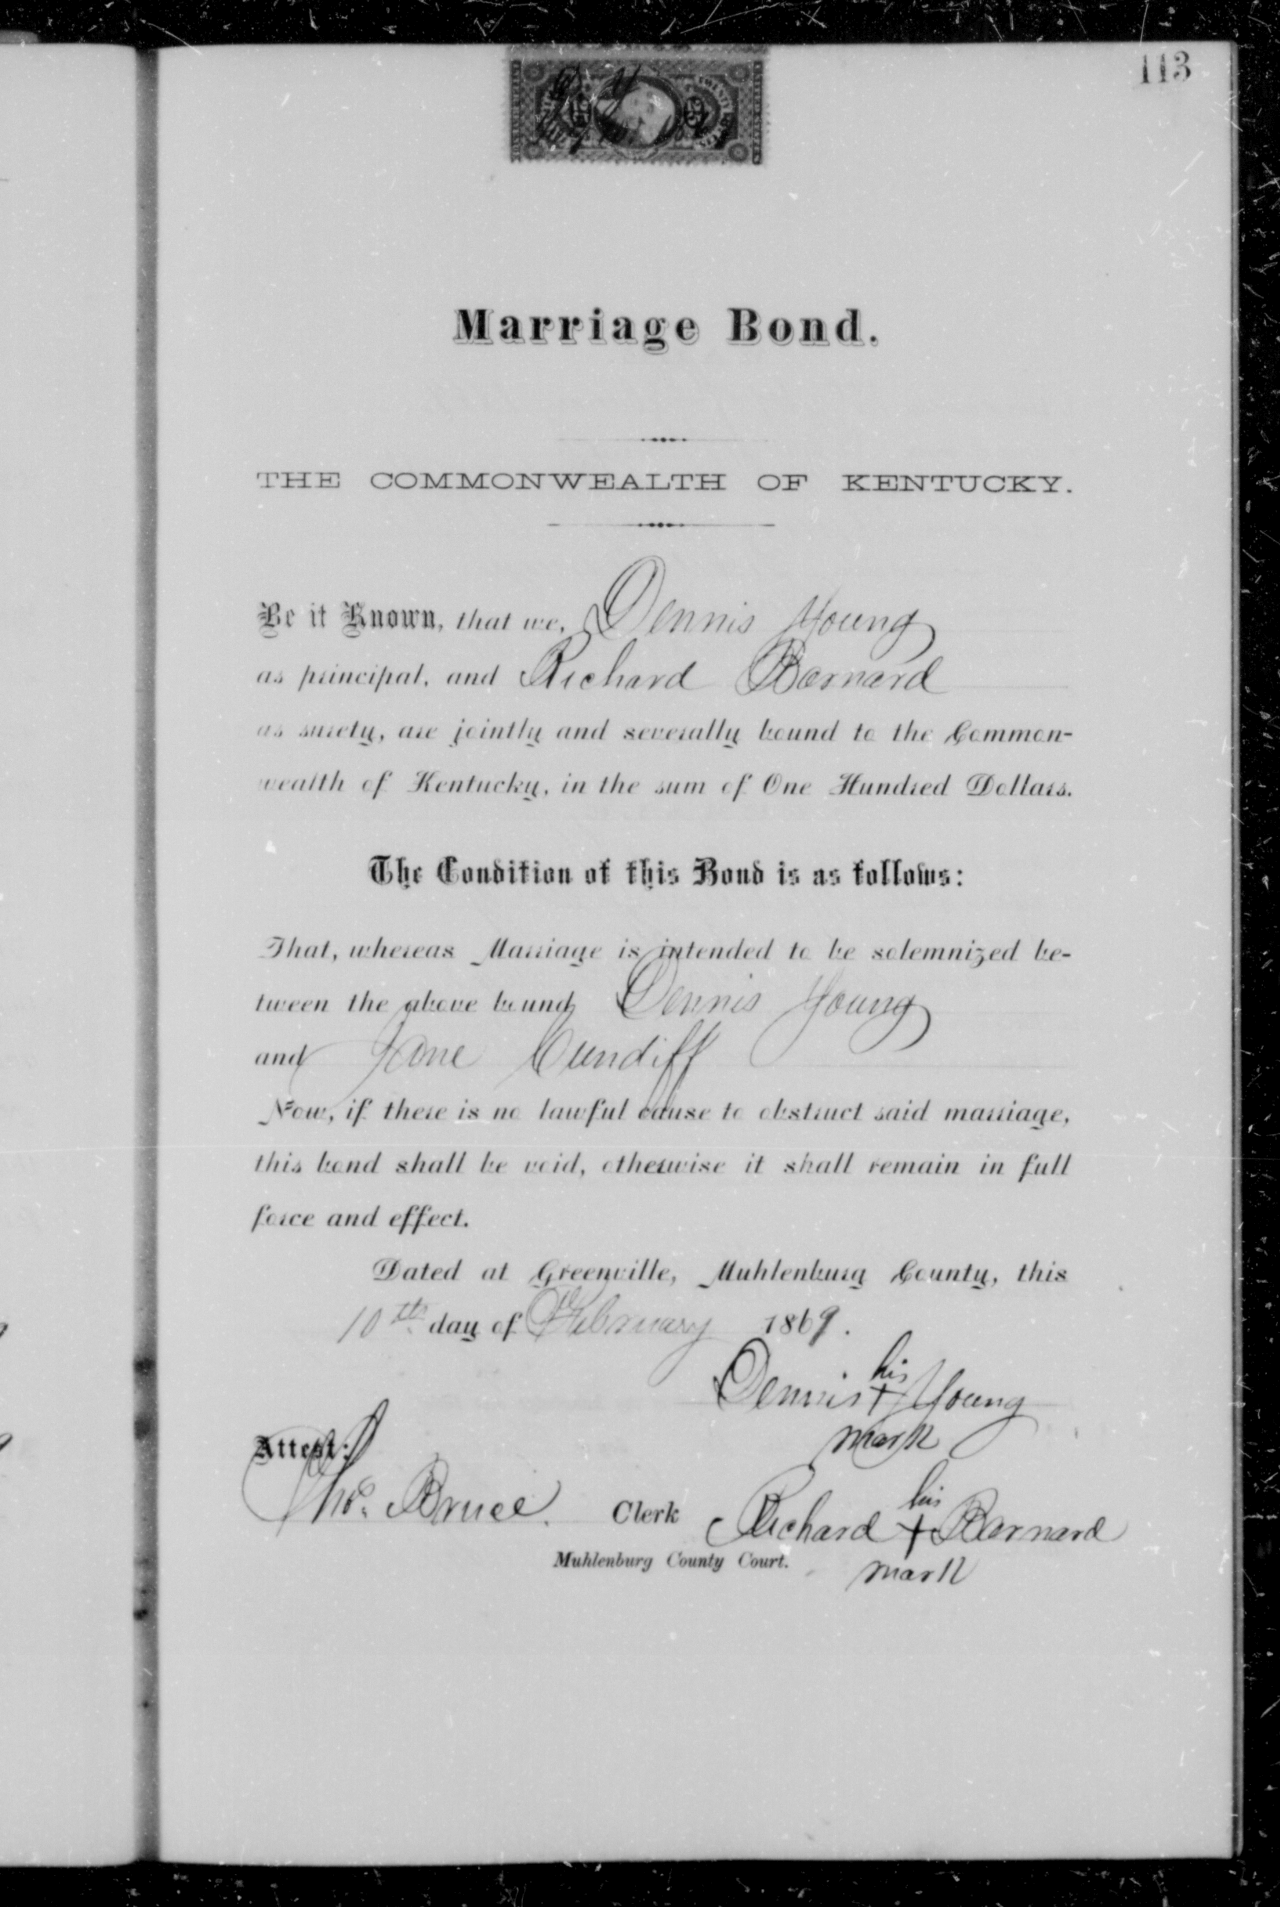 113
Marriage Bond.
THE COMMONWEALTH OF KENTUCKY.
Be it Known, that we, Dennis Young
as principal, and Richard Barnard
as surety, are jointly and severally bound to the Common-
wealth of Kentucky, in the sum of One Hundred Dollars.
The Condition of this Bond is as follows:
That, whereas Marriage is intended to be solemnized be-
tween the above bound Dennis Young
and Jane Cundiff
Now, if there is no lawful cause to obstruct said marriage,
this bond shall be void, otherwise it shall remain in full
force and effect.
Dated at Greenville, Muhlenburg County, this
10th day of February 1869.
his
Dennis + Young
mark
Attest:
his
Thos. Bruce. Clerk Richard + Barnard
Muhlenburg County Court. mark